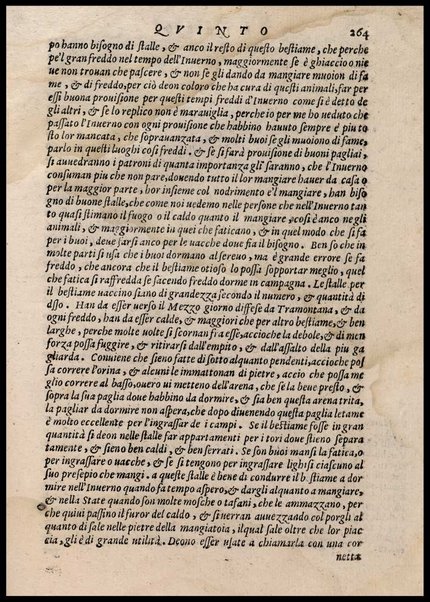 QVINTO 264
po hanno bisogno di stalle, & anco il resto di questo bestiame, che perche
pe'l gran freddo nel tempo dell'Inuerno, maggiormente se è ghiaccio o nie
ue non trouan che pascere, & non se gli dando da mangiare muoion di fa
me, & di freddo, per ciò deon coloro che ha cura di questi animali, far per
essi buona prouisione per questi tempi freddi d'Inuerno come si è detto de
gli altri, & se lo replico non è marauiglia, perche io per me ho veduto che
passato l'Inuerno con ogni prouisione che habbino hauuto sempre è piu to
sto lor mancata, che soprauanzata, & molti buoi se gli muoiono di fame,
parlo in questi luoghi cosi freddi. & se si farà prouisione di buoni pagliai,
si auuedranno i patroni di quanta importanza gli saranno, che l'Inuerno
consuman piu che non pare, douendo tutto il lor mangiare hauer da casa o
per la maggior parte, hor insieme col nodrimento e'l mangiare, han biso
gno di buone stalle, che come noi uedemo nelle persone che nell'Inuerno tan
to quasi stimano il fuogo o il caldo quanto il mangiare, cosi è anco negli
animali, & maggiormente in quei che faticano, & in quel modo che si fa
per i buoi, deue farsi anco per le uacche doue fia il bisogno. Ben so che in
molte parti si usa che i buoi dormano al sereno, ma è grande errore se fa
freddo, che ancora che il bestiame otioso lo possa sopportar meglio, quel
che fatica si raffredda se sacendo freddo dorme in campagna. Le stalle per
il bestiame uaccino siano di grandezza secondo il numero, & quantità di
esso. Han da esser uerso il Mezzo giorno difese da Tramontana, & da
ogni freddo, han da esser calde, & maggiori che per altro bestiame, & ben
larghe, perche molte uolte si scornan fi a esse, accioche la debole, & di men
forza possa fuggire, & ritirarsi dall'empito, & dall'assalto della piu ga
gliarda. Conuiene che sieno fatte di sotto alquanto pendenti, accioche pos
sa correre l'orina, & alcuni le ammattonan di pietre, accio che possa me
glio correre al basso, ouero ui metteno dell'arena, che se la beue presto, &
sopra la sua paglia doue habbino da dormire, & sia ben questa arena trita,
la pagliar da dormire non aspera, che dopo diuenendo questa paglia letame
è molto eccellente per l'ingrassar de i campi. Se il bestiame fosse in gran
quantità si deon nelle stalle far appartamenti per i tori doue stieno separa
tamente, & sieno ben caldi, & ben serrati. Se son buoi mansi la fatica, o
per ingrassare o uacche, & se si tengono per ingrassare lighisi ciascuno al
suo presepio che mangi. a queste stalle è bene di condurre il bestiame a dor
mire nell'Inuerno quando fa tempo aspero, & dargli alquanto a mangiare,
& nella State quando son molte mosche o tafani, che le ammazzano, per
che quiui passino il furor del caldo, & si uerran auuezzando col porgli al
quanto di sale nelle pietre della mangiatoia, il qual sale oltre che lor piac
cia, gli è di grande utilità. Deono esser usate a chiamarla con una cor
netta